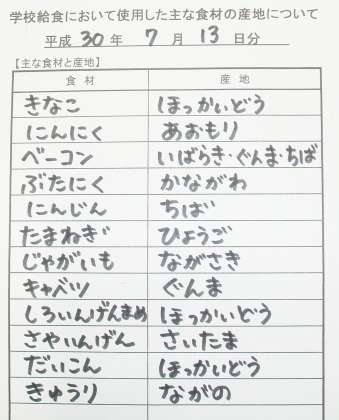 学校給食において使用した主な食材の産地について
平成 30 年 7 月 13 日分
【主な食材と産地】
食材 産地
きなこ ほっかいどう
にんにく あおもり
ベーコン いばらき・ぐんま・ちば
ぶたにく かながわ
にんじん ちば
たまねぎ ひょうご
じゃがいも ながさき
キャベツ ぐんま
しろいんげんまめ ほっかいどう
さやいんげん さいたま
だいこん ほっかいどう
きゅうり ながの